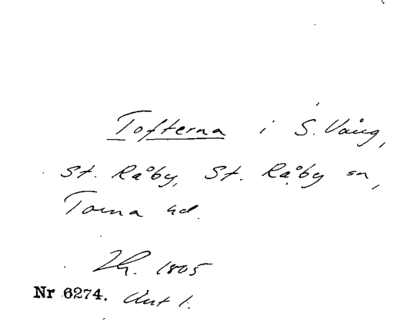 Tofterna i S. Vång,
St. Råby, St. Råby sn,
Torna hd.
1805
Nr 6274. Akt 1.